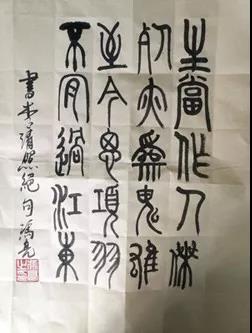 生當作人傑
死亦為鬼雄
至今思項羽
不肯過江東
書李清照絕句馮